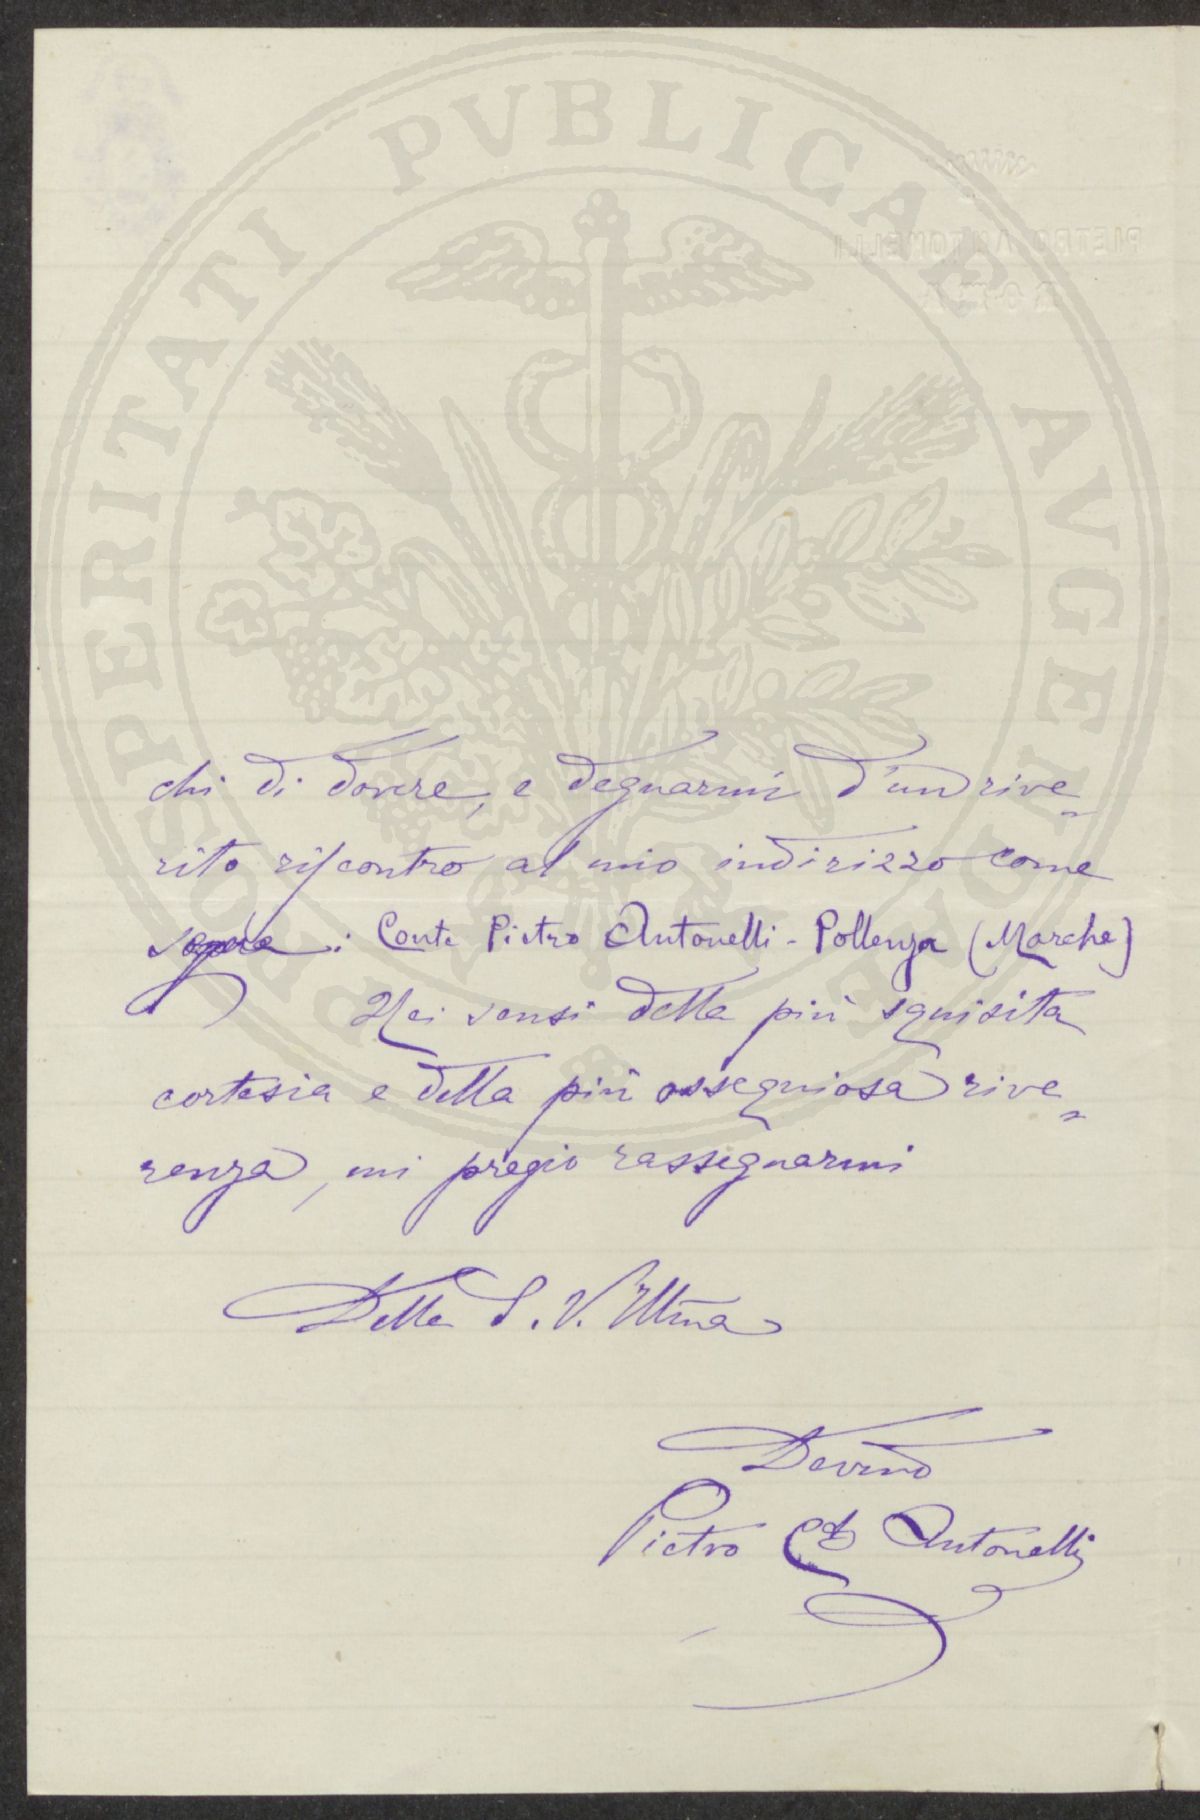 PROSPERITATI PVBLICAE AVGENDAE
PIETRO ANTONELLI
ROMA
chi di dovere, e degnarmi d'un rive=
rito riscontro al mio indirizzo come
sopra: Conte Pietro Antonelli - Pollenza (Marche)
Nei sensi della più squisita
cortesia e della più ossequiosa rive=
renza, mi pregio rassegnarmi
Della S. V. Illma
Devmo
Pietro Cte Antonelli